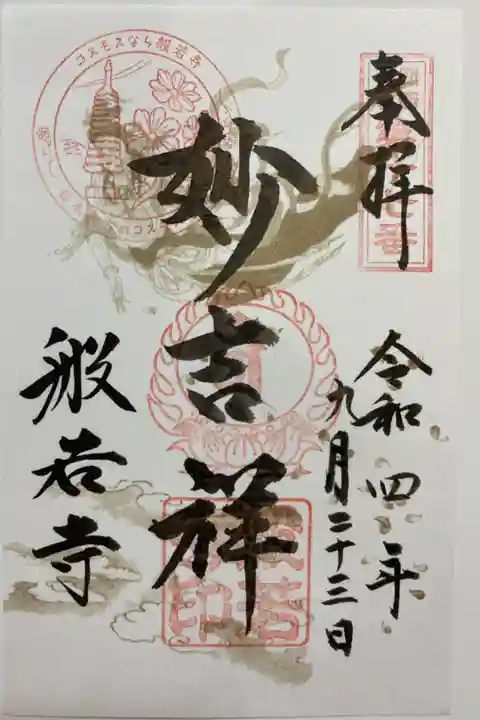 奉拝
令和四年
九月二十三日
妙吉祥
般若寺
コスモスなら般若寺